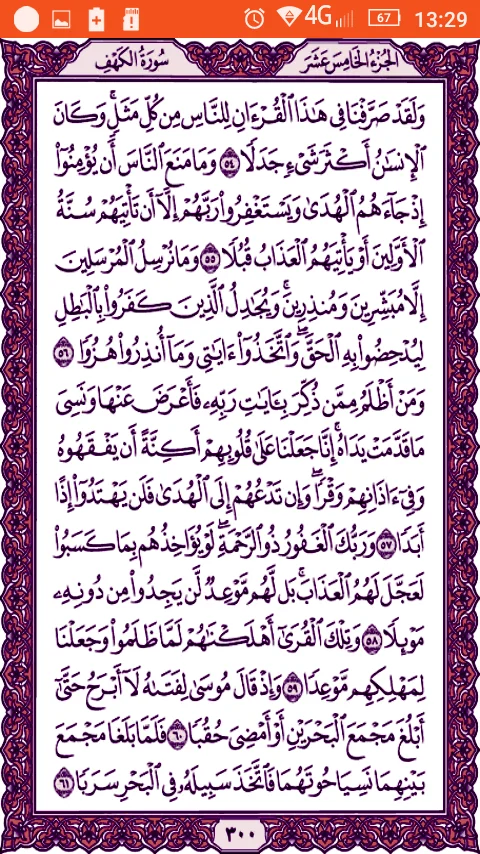 4G 67 13:29
الجزء الخامس عشر سورة الكهف
وَلَقَدْ صَرَّفْنَا فِي هَٰذَا الْقُرْءَانِ لِلنَّاسِ مِن كُلِّ مَثَلٍ ۚ وَكَانَ
الْإِنسَٰنُ أَكْثَرَ شَىْءٍ جَدَلًا ٥٤ وَمَا مَنَعَ النَّاسَ أَن يُؤْمِنُوٓا۟
إِذْ جَآءَهُمُ الْهُدَىٰ وَيَسْتَغْفِرُوا۟ رَبَّهُمْ إِلَّآ أَن تَأْتِيَهُمْ سُنَّةُ
الْأَوَّلِينَ أَوْ يَأْتِيَهُمُ الْعَذَابُ قُبُلًا ٥٥ وَمَا نُرْسِلُ الْمُرْسَلِينَ
إِلَّا مُبَشِّرِينَ وَمُنذِرِينَ ۚ وَيُجَٰدِلُ الَّذِينَ كَفَرُوا۟ بِالْبَٰطِلِ
لِيُدْحِضُوا۟ بِهِ الْحَقَّ ۖ وَاتَّخَذُوٓا۟ ءَايَٰتِى وَمَآ أُنذِرُوا۟ هُزُوًا ٥٦
وَمَنْ أَظْلَمُ مِمَّن ذُكِّرَ بِـَٔايَٰتِ رَبِّهِۦ فَأَعْرَضَ عَنْهَا وَنَسِىَ
مَا قَدَّمَتْ يَدَاهُ ۚ إِنَّا جَعَلْنَا عَلَىٰ قُلُوبِهِمْ أَكِنَّةً أَن يَفْقَهُوهُ
وَفِىٓ ءَاذَانِهِمْ وَقْرًا ۖ وَإِن تَدْعُهُمْ إِلَى الْهُدَىٰ فَلَن يَهْتَدُوٓا۟ إِذًا
أَبَدًا ٥٧ وَرَبُّكَ الْغَفُورُ ذُو الرَّحْمَةِ ۖ لَوْ يُؤَاخِذُهُم بِمَا كَسَبُوا۟
لَعَجَّلَ لَهُمُ الْعَذَابَ ۚ بَل لَّهُم مَّوْعِدٌ لَّن يَجِدُوا۟ مِن دُونِهِۦ
مَوْئِلًا ٥٨ وَتِلْكَ الْقُرَىٰٓ أَهْلَكْنَٰهُمْ لَمَّا ظَلَمُوا۟ وَجَعَلْنَا
لِمَهْلِكِهِم مَّوْعِدًا ٥٩ وَإِذْ قَالَ مُوسَىٰ لِفَتَىٰهُ لَآ أَبْرَحُ حَتَّىٰٓ
أَبْلُغَ مَجْمَعَ الْبَحْرَيْنِ أَوْ أَمْضِىَ حُقُبًا ٦٠ فَلَمَّا بَلَغَا مَجْمَعَ
بَيْنِهِمَا نَسِيَا حُوتَهُمَا فَاتَّخَذَ سَبِيلَهُۥ فِى الْبَحْرِ سَرَبًا ٦١
٣٠٠